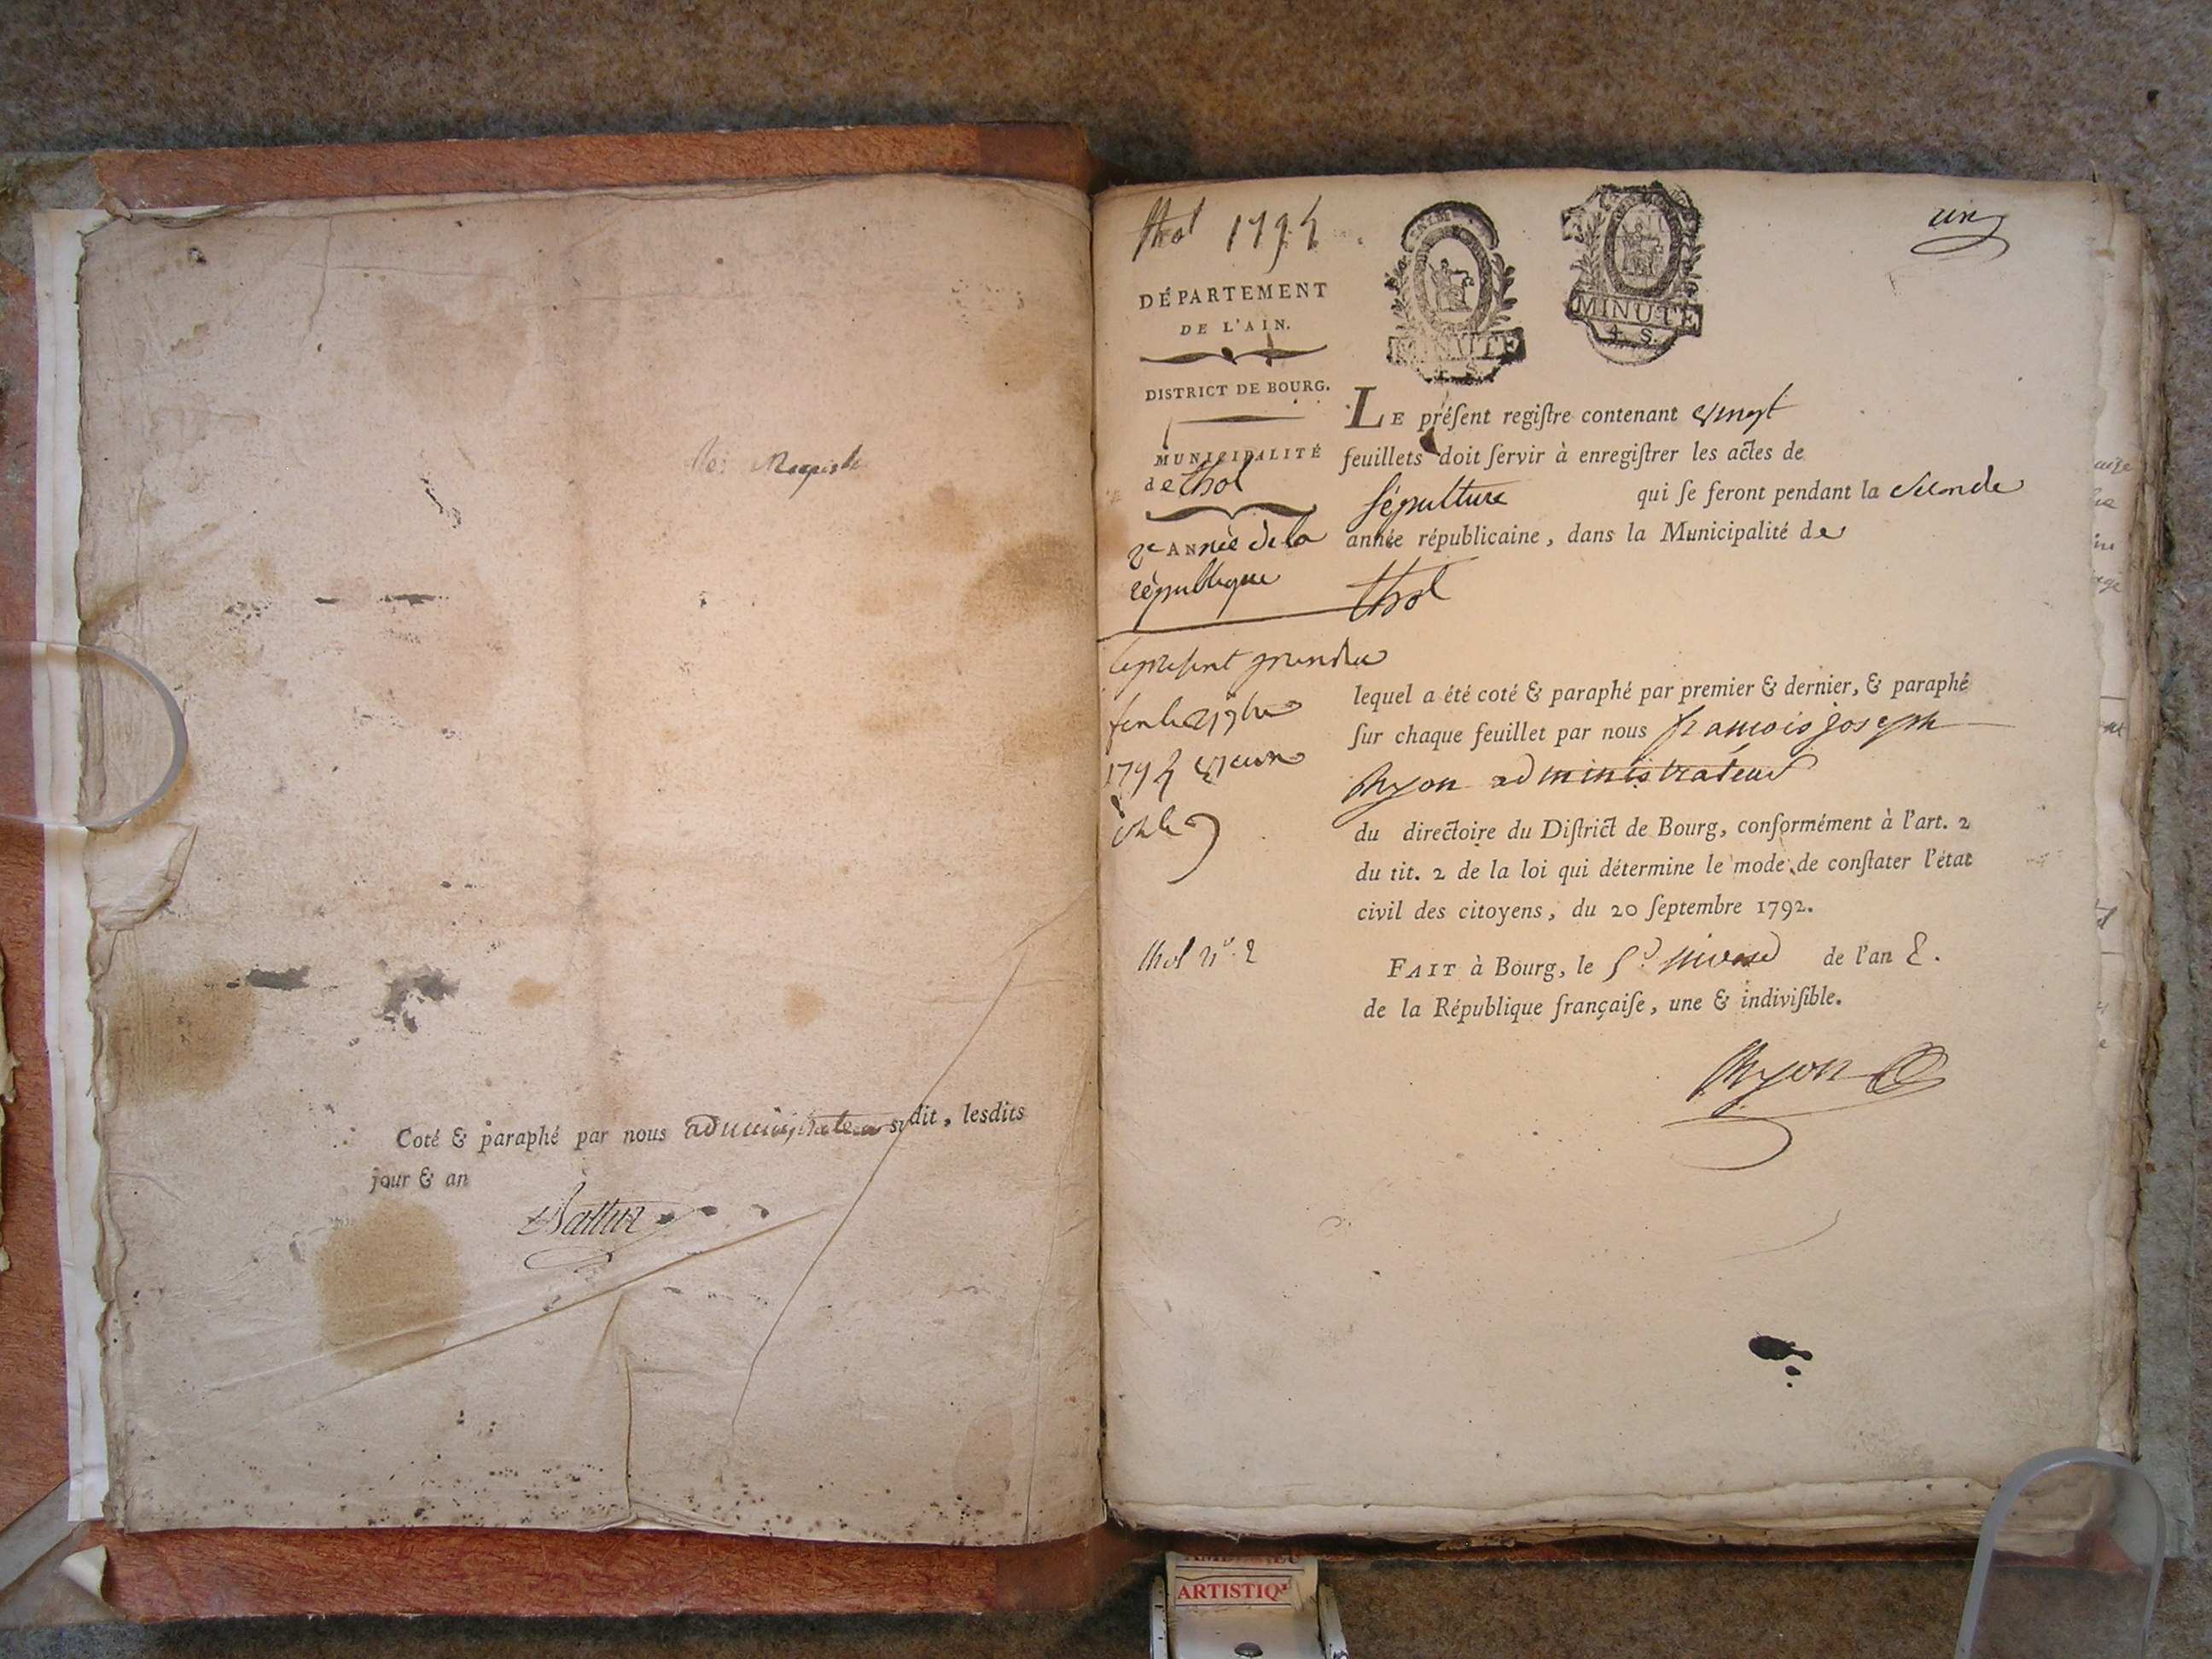 Coté & paraphé par nous administrateur sudit, lesdits
jour & an
thol 1794
un
DÉPARTEMENT
DE L'AIN.
DISTRICT DE BOURG.
MUNICIPALITÉ
de thol
2e ANnée de la
république
MINUTE
MINUTE
4 S.
LE préſent regiſtre contenant vingt
feuillets doit ſervir à enregiſtrer les actes de
ſépulture qui ſe feront pendant la seconde
année républicaine, dans la Municipalité de
thol
le present
1794
lequel a été coté & paraphé par premier & dernier, & paraphé
ſur chaque feuillet par nous françois joseph
administrateur
du directoire du Diſtrict de Bourg, conformément à l'art. 2
du tit. 2 de la loi qui détermine le mode de conſtater l'état
civil des citoyens, du 20 ſeptembre 1792.
thol n° 2
FAIT à Bourg, le nivose de l'an 2.
de la République françaiſe, une & indiviſible.
ARTISTIQ